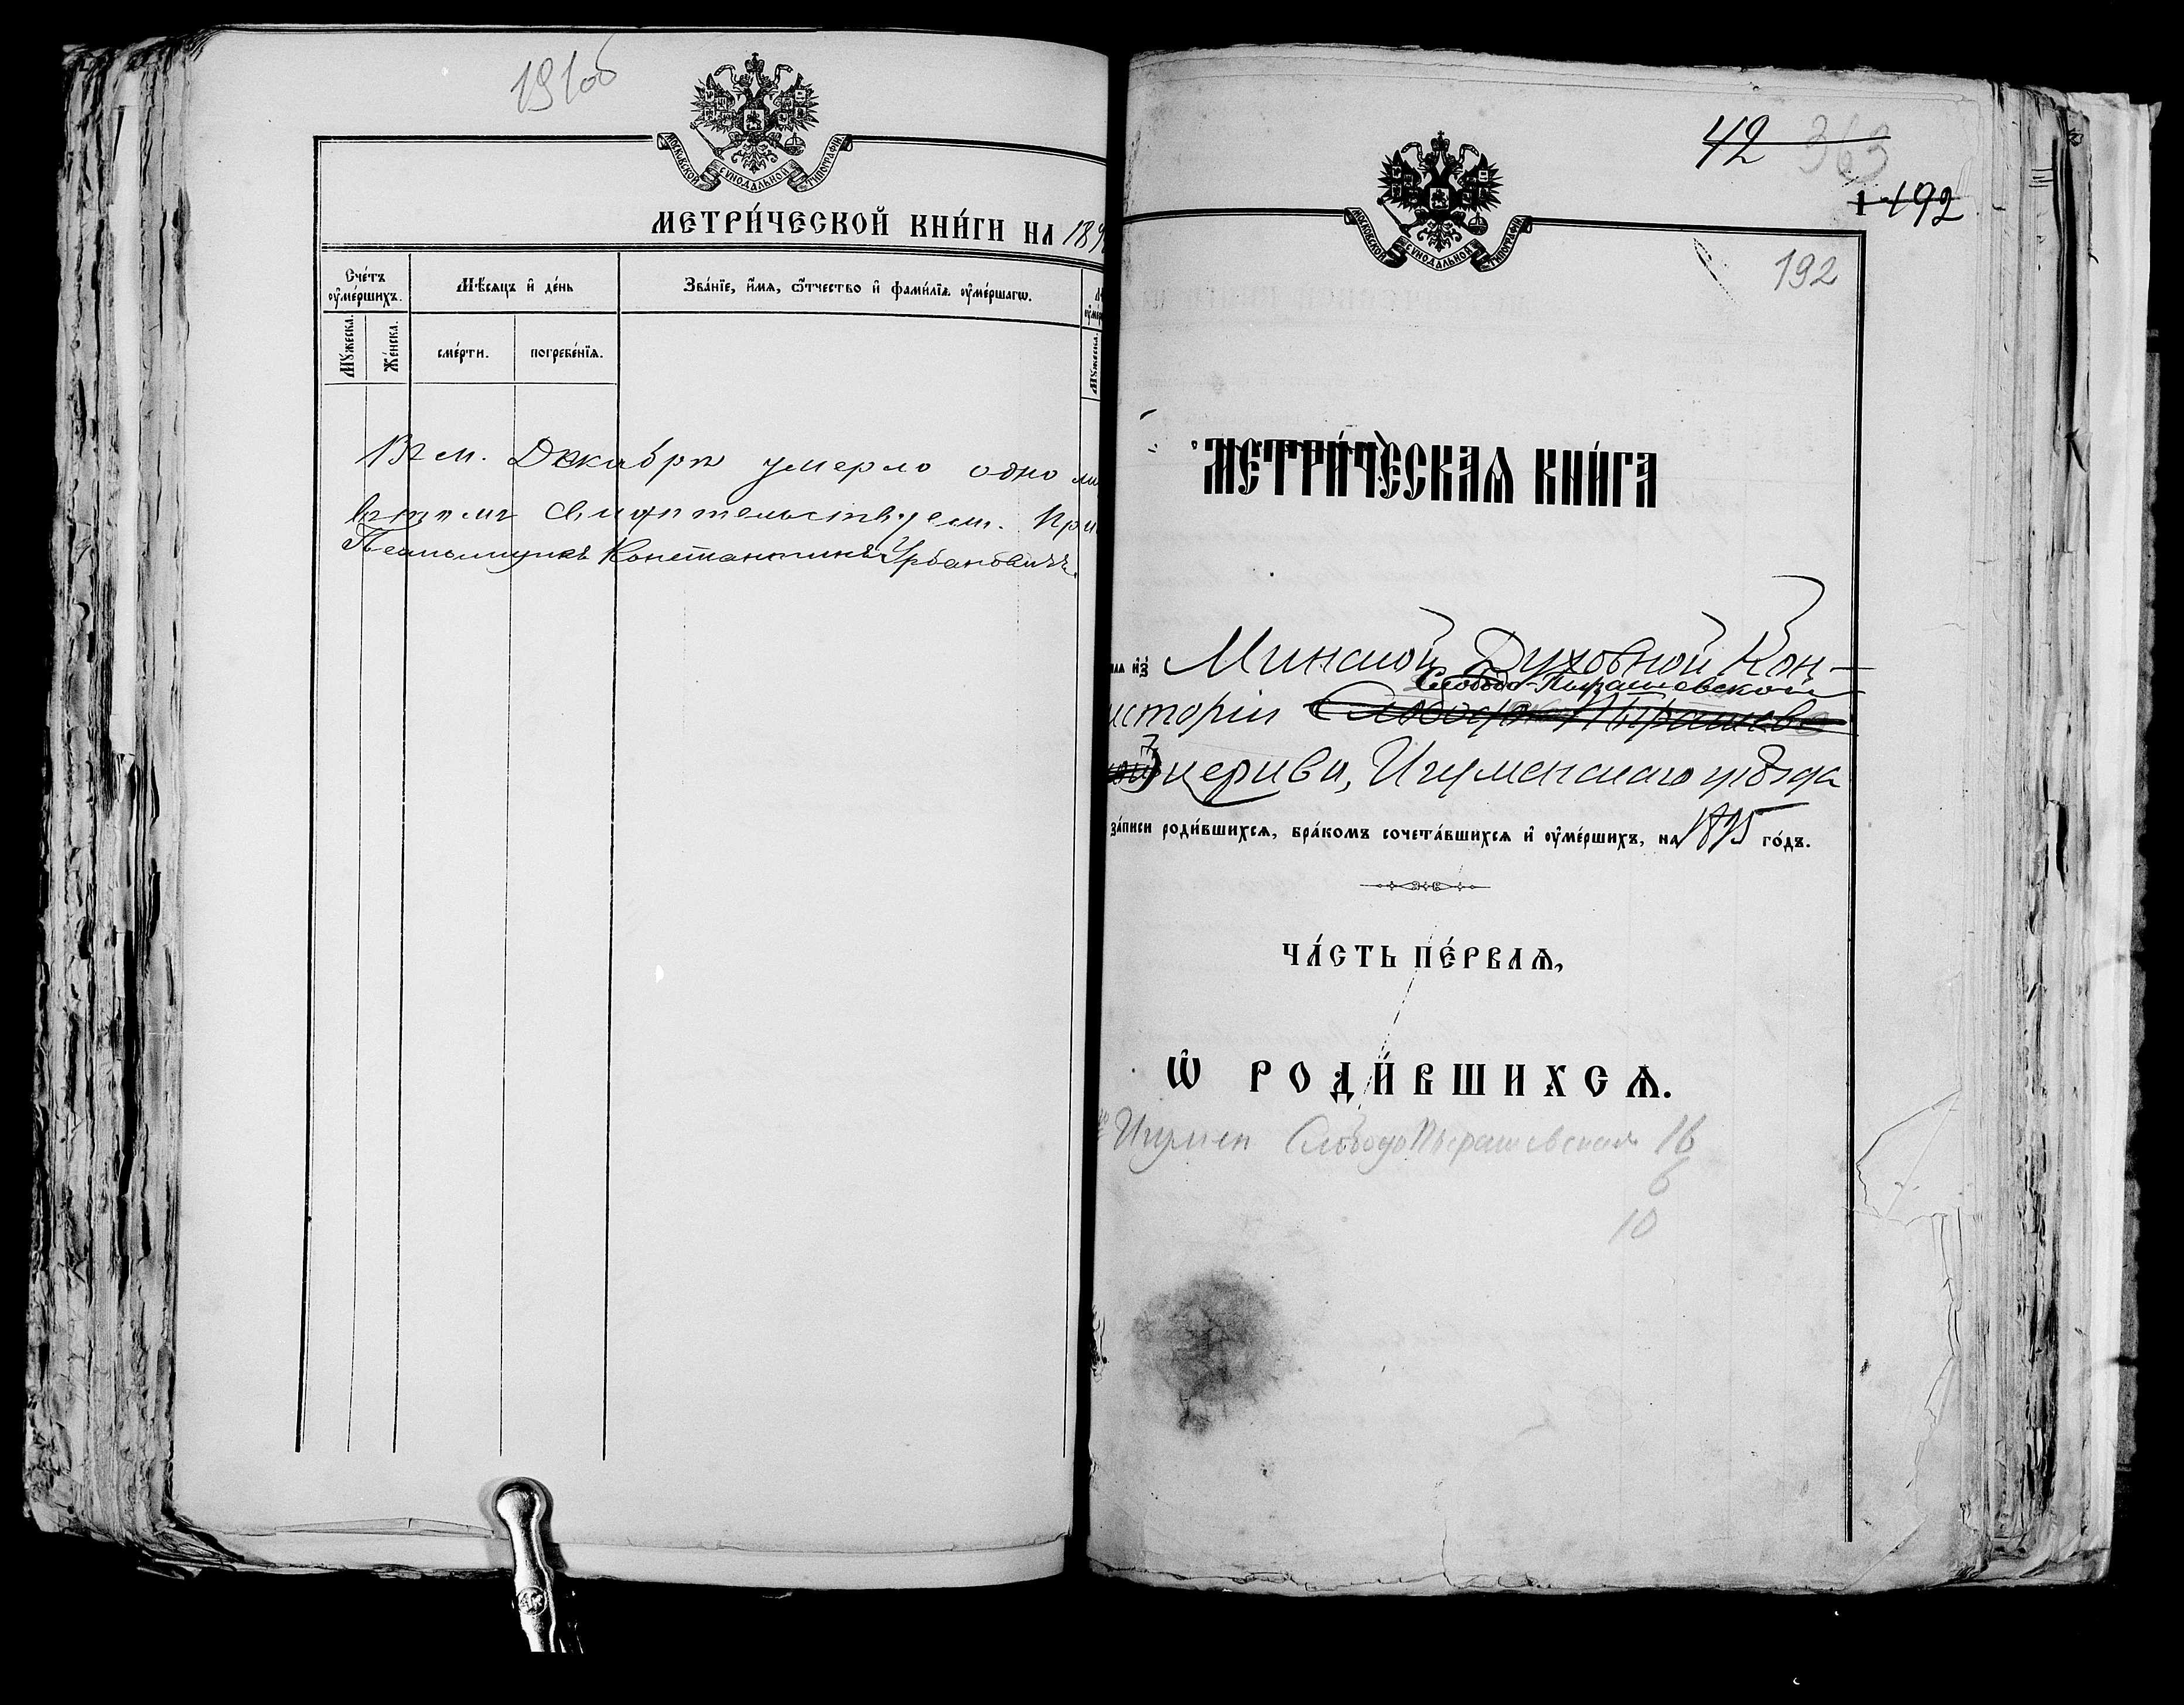 191об
МОСКОВСКОЙ СѴНОДАЛЬНОЙ ТИПОГРАФІИ
МЕТРИ́ЧЕСКОЙ КНИ́ГИ НА 189
Сче́тъ ᲂу҆ме́ршихъ.
Мѣ́сяцъ и҆ де́нь
Зва́нїе, и҆́мѧ, ѻ҆́тчество и҆ фами́лїѧ ᲂу҆ме́ршагѡ.
Мꙋ́жеска.
Же́нска.
сме́рти.
погребе́нїѧ.
Мꙋ́жеска.
Въ м. Декабрѣ умерло одно
въ чемъ свидѣтельствуемъ. При
Псаломщикъ Константинъ Урбановичъ.
42 363
1 192
192
МОСКОВСКОЙ СѴНОДАЛЬНОЙ ТИПОГРАФІИ
МЕТРИ́ЧЕСКАѦ КНИ́ГА
и҆з̾ Минской Духовной Кон-
Слободо-Пырашевской
исторіи Слободо-Пырашево
церкви, Игуменскаго уѣзда
за́писи роди́вшихсѧ, бра́комъ сочета́вшихсѧ и҆ ᲂу҆ме́ршихъ, на 1895 го́дъ.
ЧА́СТЬ ПЕ́РВАѦ,
Ѡ҆ РОДИ́ВШИХСѦ.
Игумен Слободо Пырашевская 16
6
10